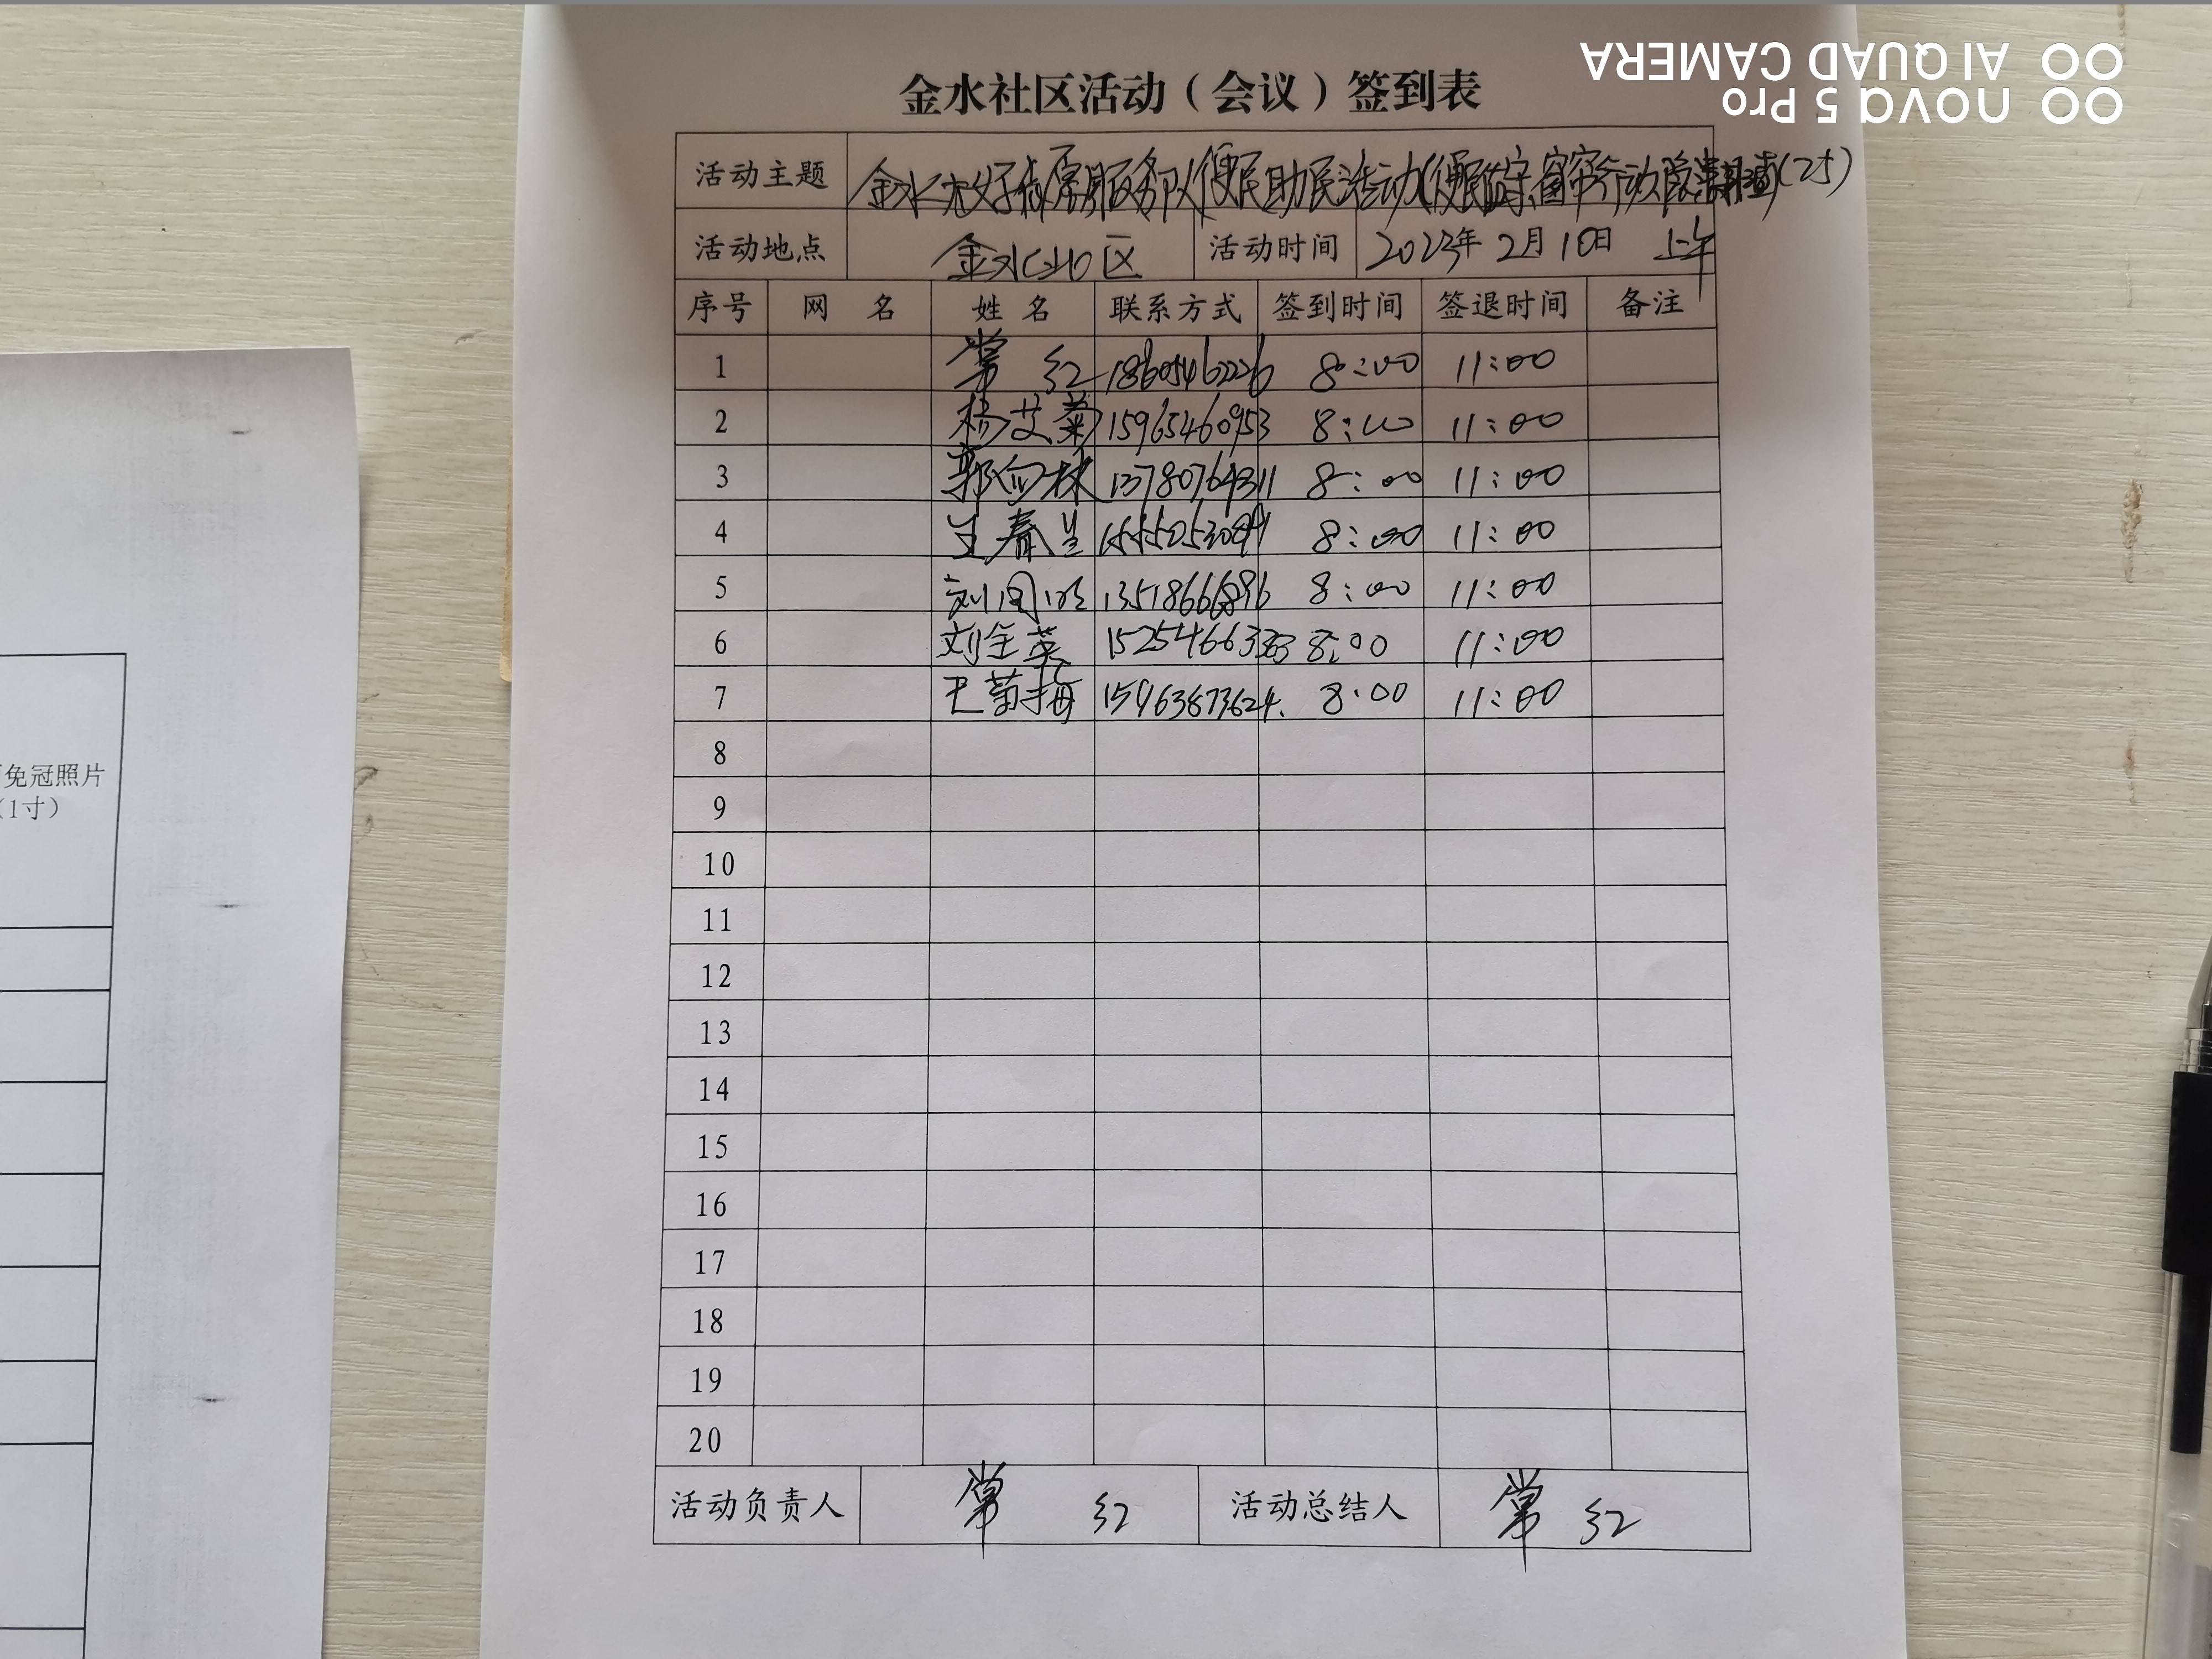 AI QUAD CAMERA
nova 5 Pro
金水社区活动（会议）签到表
活动主题 金水 服务队便民助民活动(便民 窗帘行动 排查)(25)
活动地点 金水社区 活动时间 2023年2月10日 上午
序号 网 名 姓 名 联系方式 签到时间 签退时间 备注
1 常 红 18605462226 8:00 11:00
2 杨艾菊 15965460953 8:00 11:00
3 郭 林 13780764311 8:00 11:00
4 王春兰 8:00 11:00
5 刘 8:00 11:00
6 刘全英 8:00 11:00
7 王菊梅 8:00 11:00
8
9
10
11
12
13
14
15
16
17
18
19
20
活动负责人 常 红 活动总结人 常 红
免冠照片
（1寸）